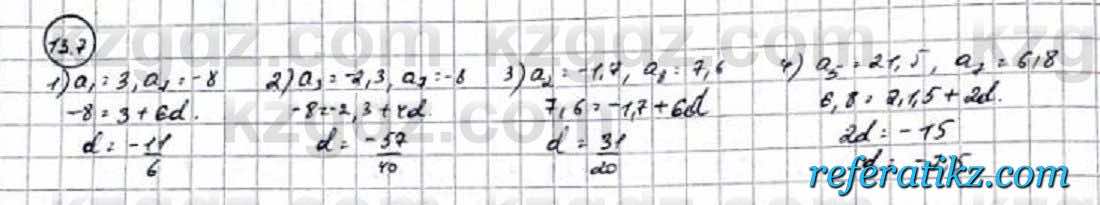 13.7
1) a₁ = 3, a₇ = -8
-8 = 3 + 6d.
d = -11/6
2) a₃ = -2,3, a₇ = -8
-8 = -2,3 + 4d.
d = -57/40
3) a₂ = -1,7, a₈ = 7,6
7,6 = -1,7 + 6d
d = 31/20
4) a₅ = 21,5, a₇ = 6,8
6,8 = 21,5 + 2d.
2d = -15
referatikz.com